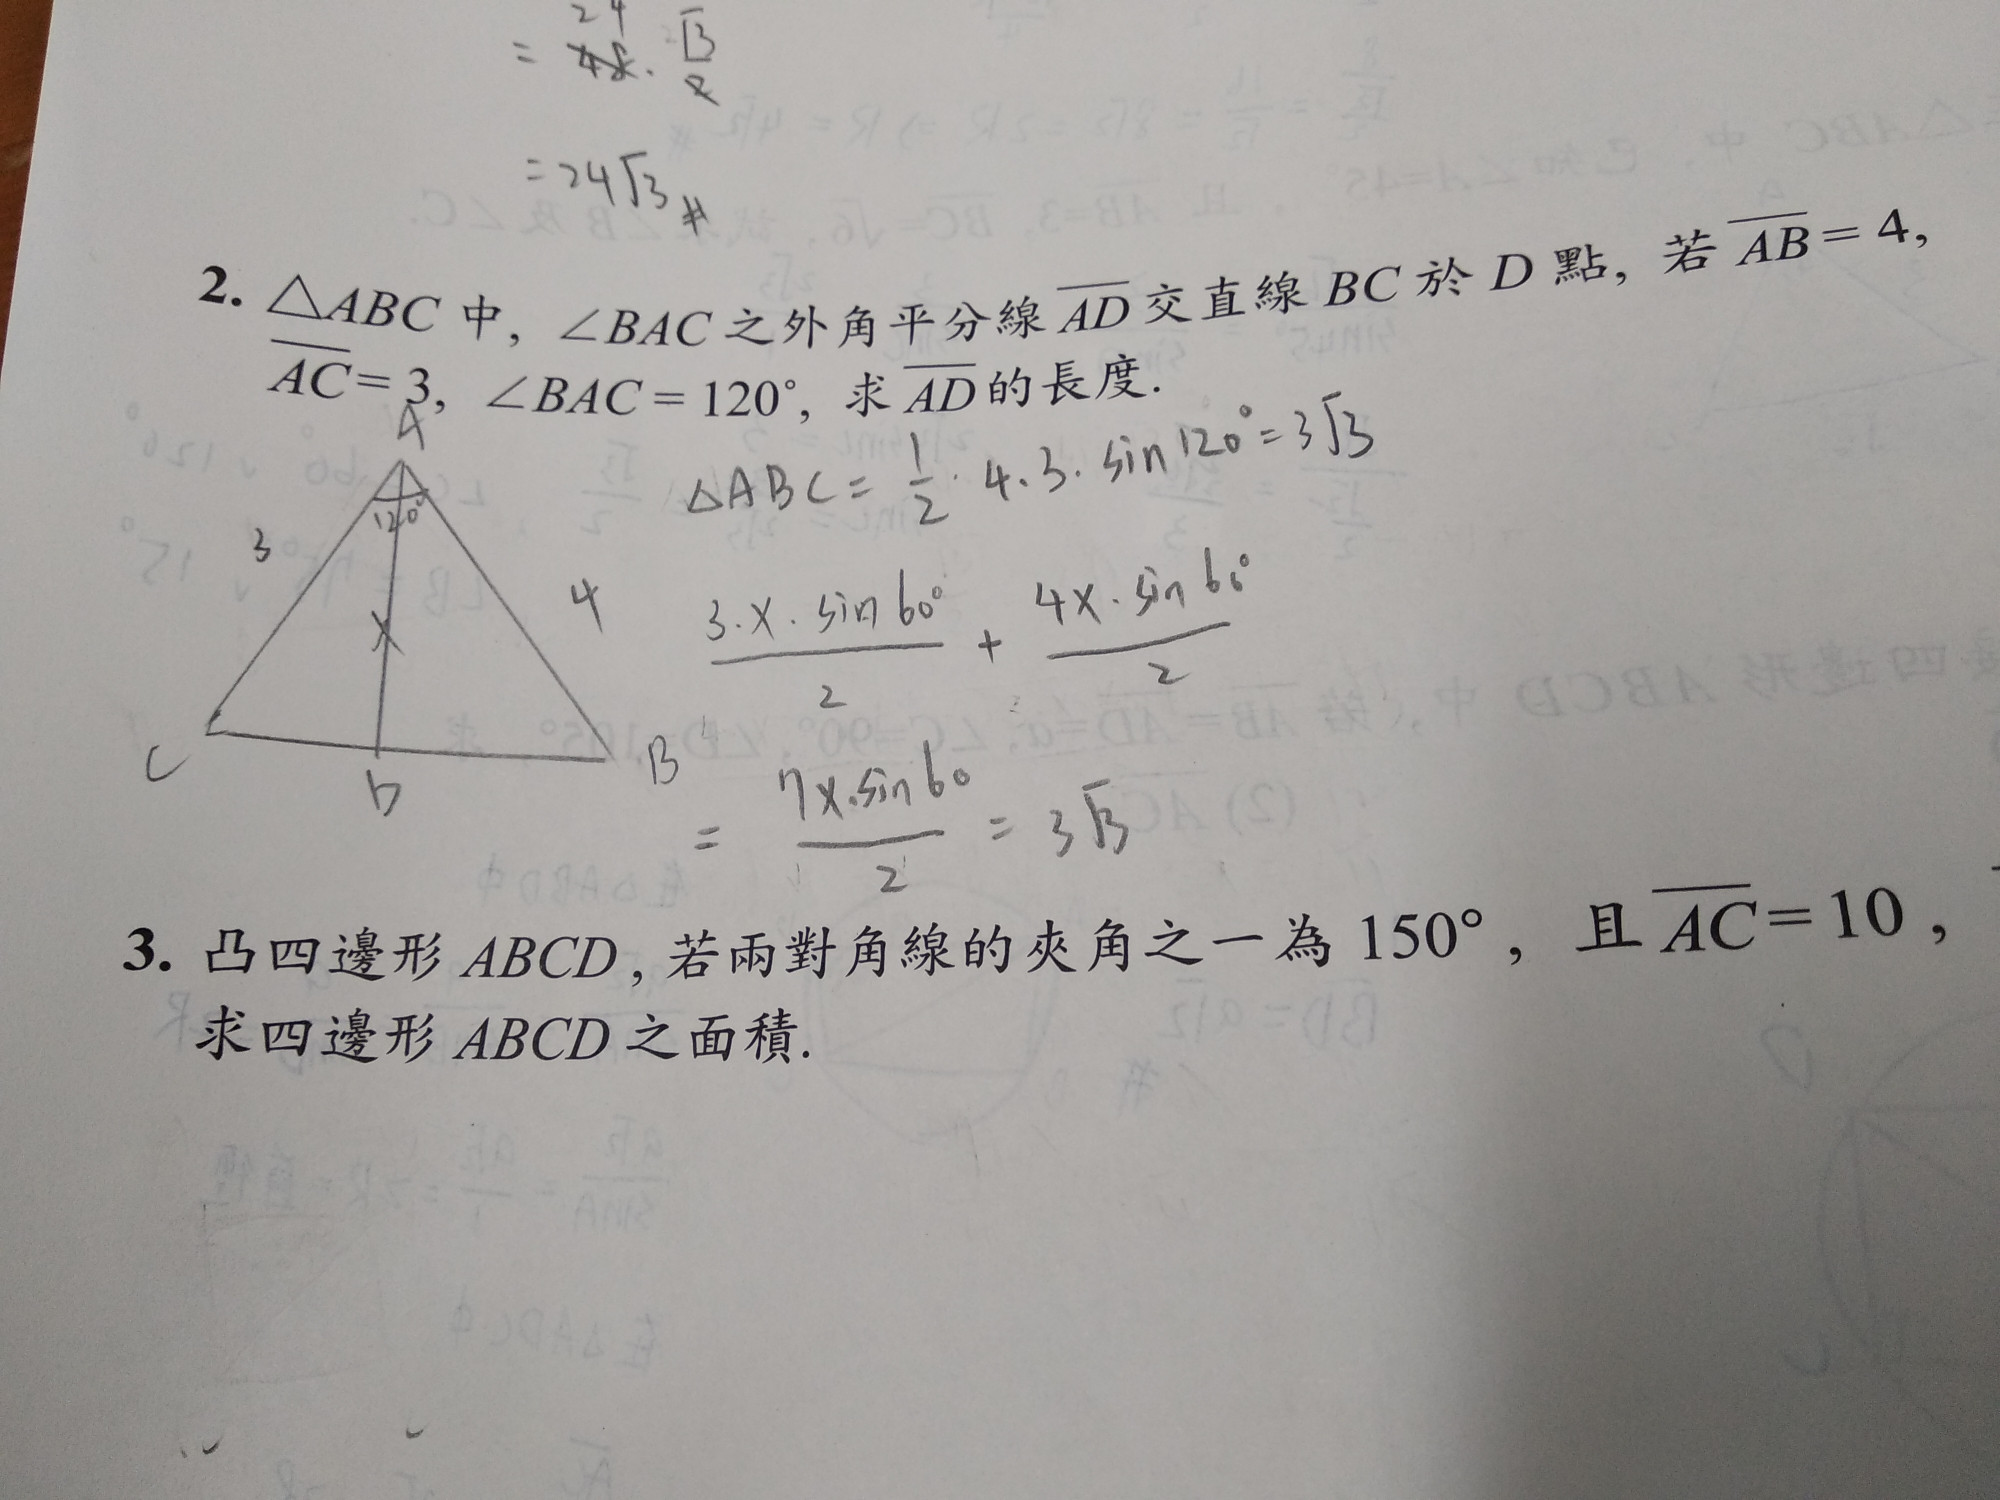 24
= 48 · √3/2
= 24√3 #
2. △ABC 中, ∠BAC 之外角平分線 AD 交直線 BC 於 D 點, 若 AB = 4,
AC = 3, ∠BAC = 120°, 求 AD 的長度.
A
△ABC = 1/2 · 4 · 3 · sin120° = 3√3
120°
3
4
x
3·x·sin60°/2 + 4x·sin60°/2
C
D
B
= 7x·sin60/2 = 3√3
3. 凸四邊形 ABCD, 若兩對角線的夾角之一為 150°, 且 AC = 10,
求四邊形 ABCD 之面積.